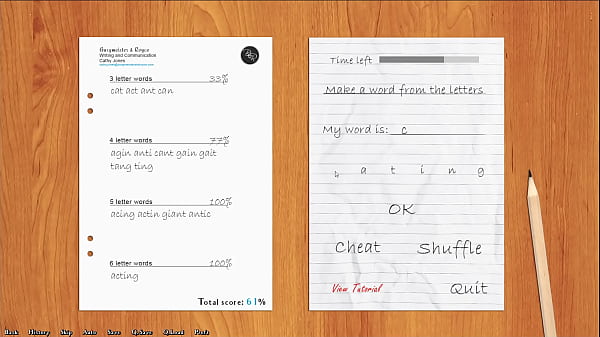 Writing and Communication
Cathy Jones
3 letter words 33%
cat act ant can
4 letter words 77%
agin anti cant gain gait
tang ting
5 letter words 100%
acing actin giant antic
6 letter words 100%
acting
Total score: 61%
Time left
Make a word from the letters
My word is: c
a t i n g
OK
Cheat Shuffle
View Tutorial Quit
Back History Skip Auto Save Q.Save Q.Load Prefs